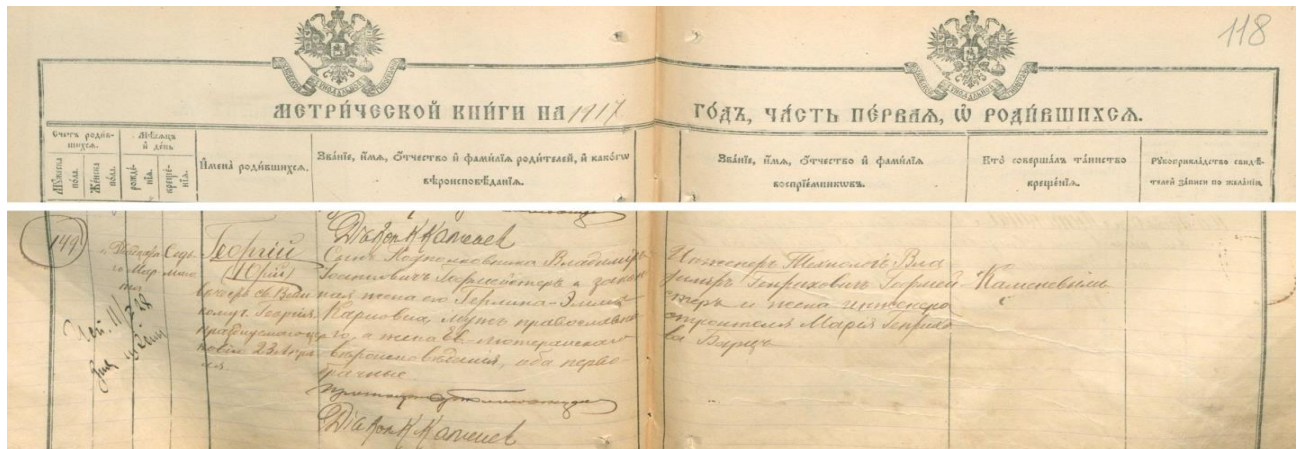 118
МЕТРИ́ЧЕСКОЙ КНИ́ГИ НА 1917 ГО́ДЪ, ЧА́СТЬ ПЕ́РВАЯ, Ѡ РОДИ́ВШИХСЯ.
Счетъ роди́в-
шихся.
Мѣсяцъ
и день
Му́жеска
по́ла.
Же́нска
по́ла.
рожде́-
нія.
креще́-
нія.
Имена̀ роди́вшихся.
Зва́ніе, и́мя, о́тчество и фами́лія роди́телей, и како́гѡ
вѣроисповѣ́данія.
Зва́ніе, и́мя, о́тчество и фами́лія
воспріе́мниковъ.
Кто̀ соверша́лъ та́инство
креще́нія.
Рукоприкла́дство свидѣ́-
телей за́писи по жела́нію
Діаконъ К Каменевъ
149
го Мар
та
Седь
мага
Георгій
(Юрій)
вечеръ св. Вели
кому. Георгія
празднуемаго
23 Апрѣ
ля
Сынъ Подполковника Владиміръ
Гофмейстеръ и закон
ная жена его Герлина-Элима
Карловна, мужъ православна
го, а жена Ев.-лютеранскаго
вѣроисповѣданія, оба перво
брачные
Діаконъ К Каменевъ
Инженеръ Технологъ Вла
диміръ Генриховичъ Гофмей
стеръ и жена инженера
строителя Марія Генрихо
ва
Каменевымъ